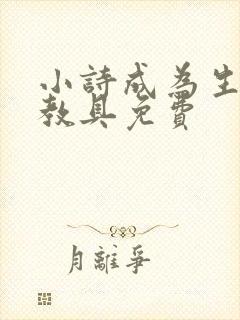 小詩成為生
教具免費
月離爭